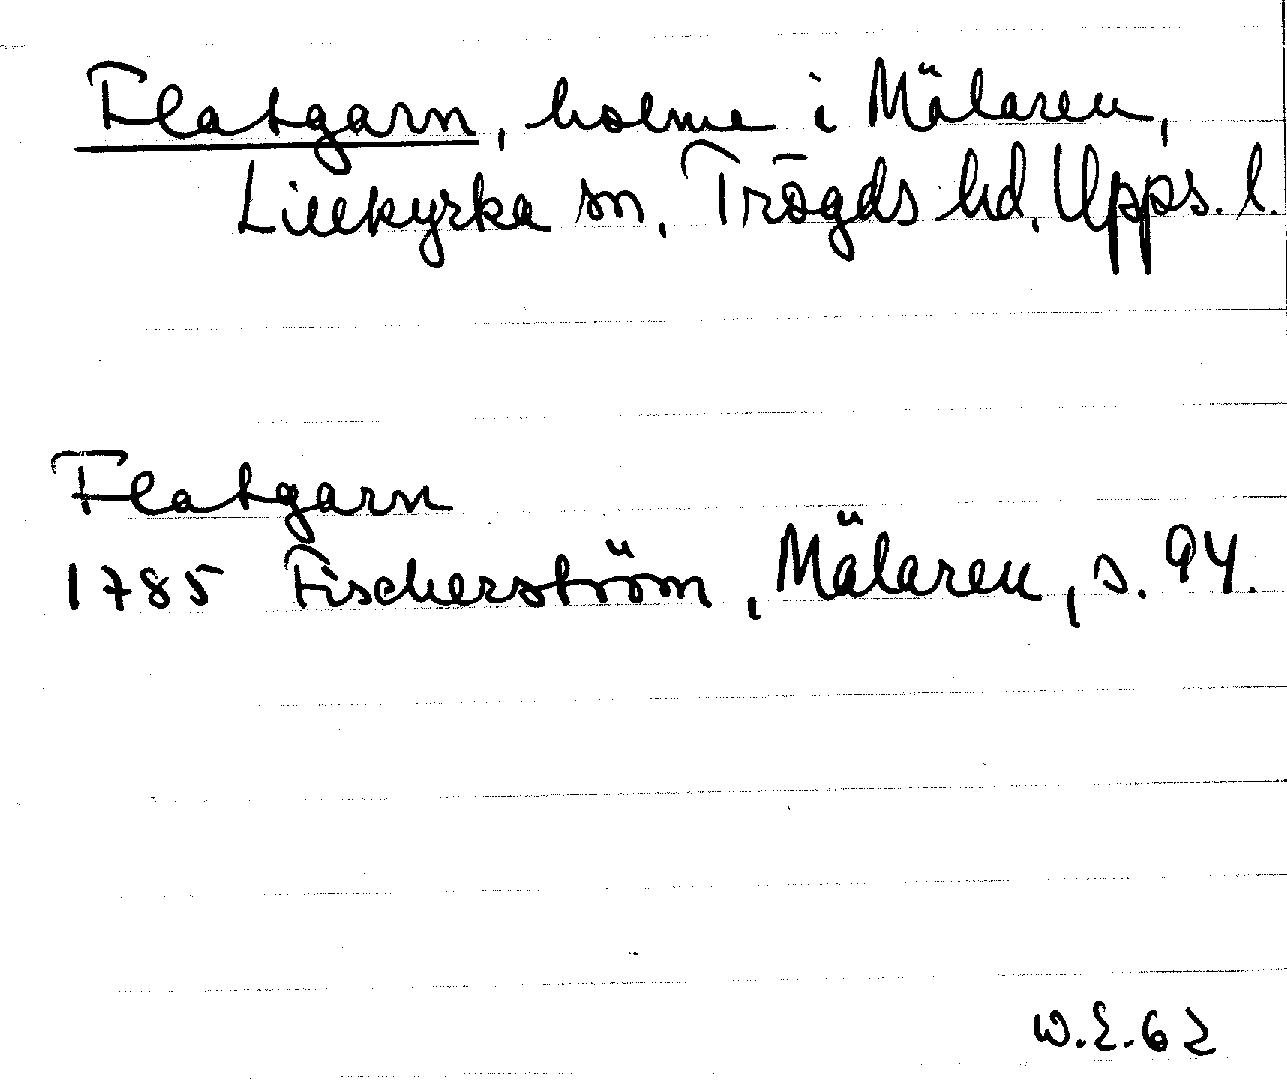 Flatgarn, holme i Mälaren,
Lillkyrka sn, Trögds hd, Upps. l.
Flatgarn
1785 Fischerström, Mälaren, s. 94.
W.E.62